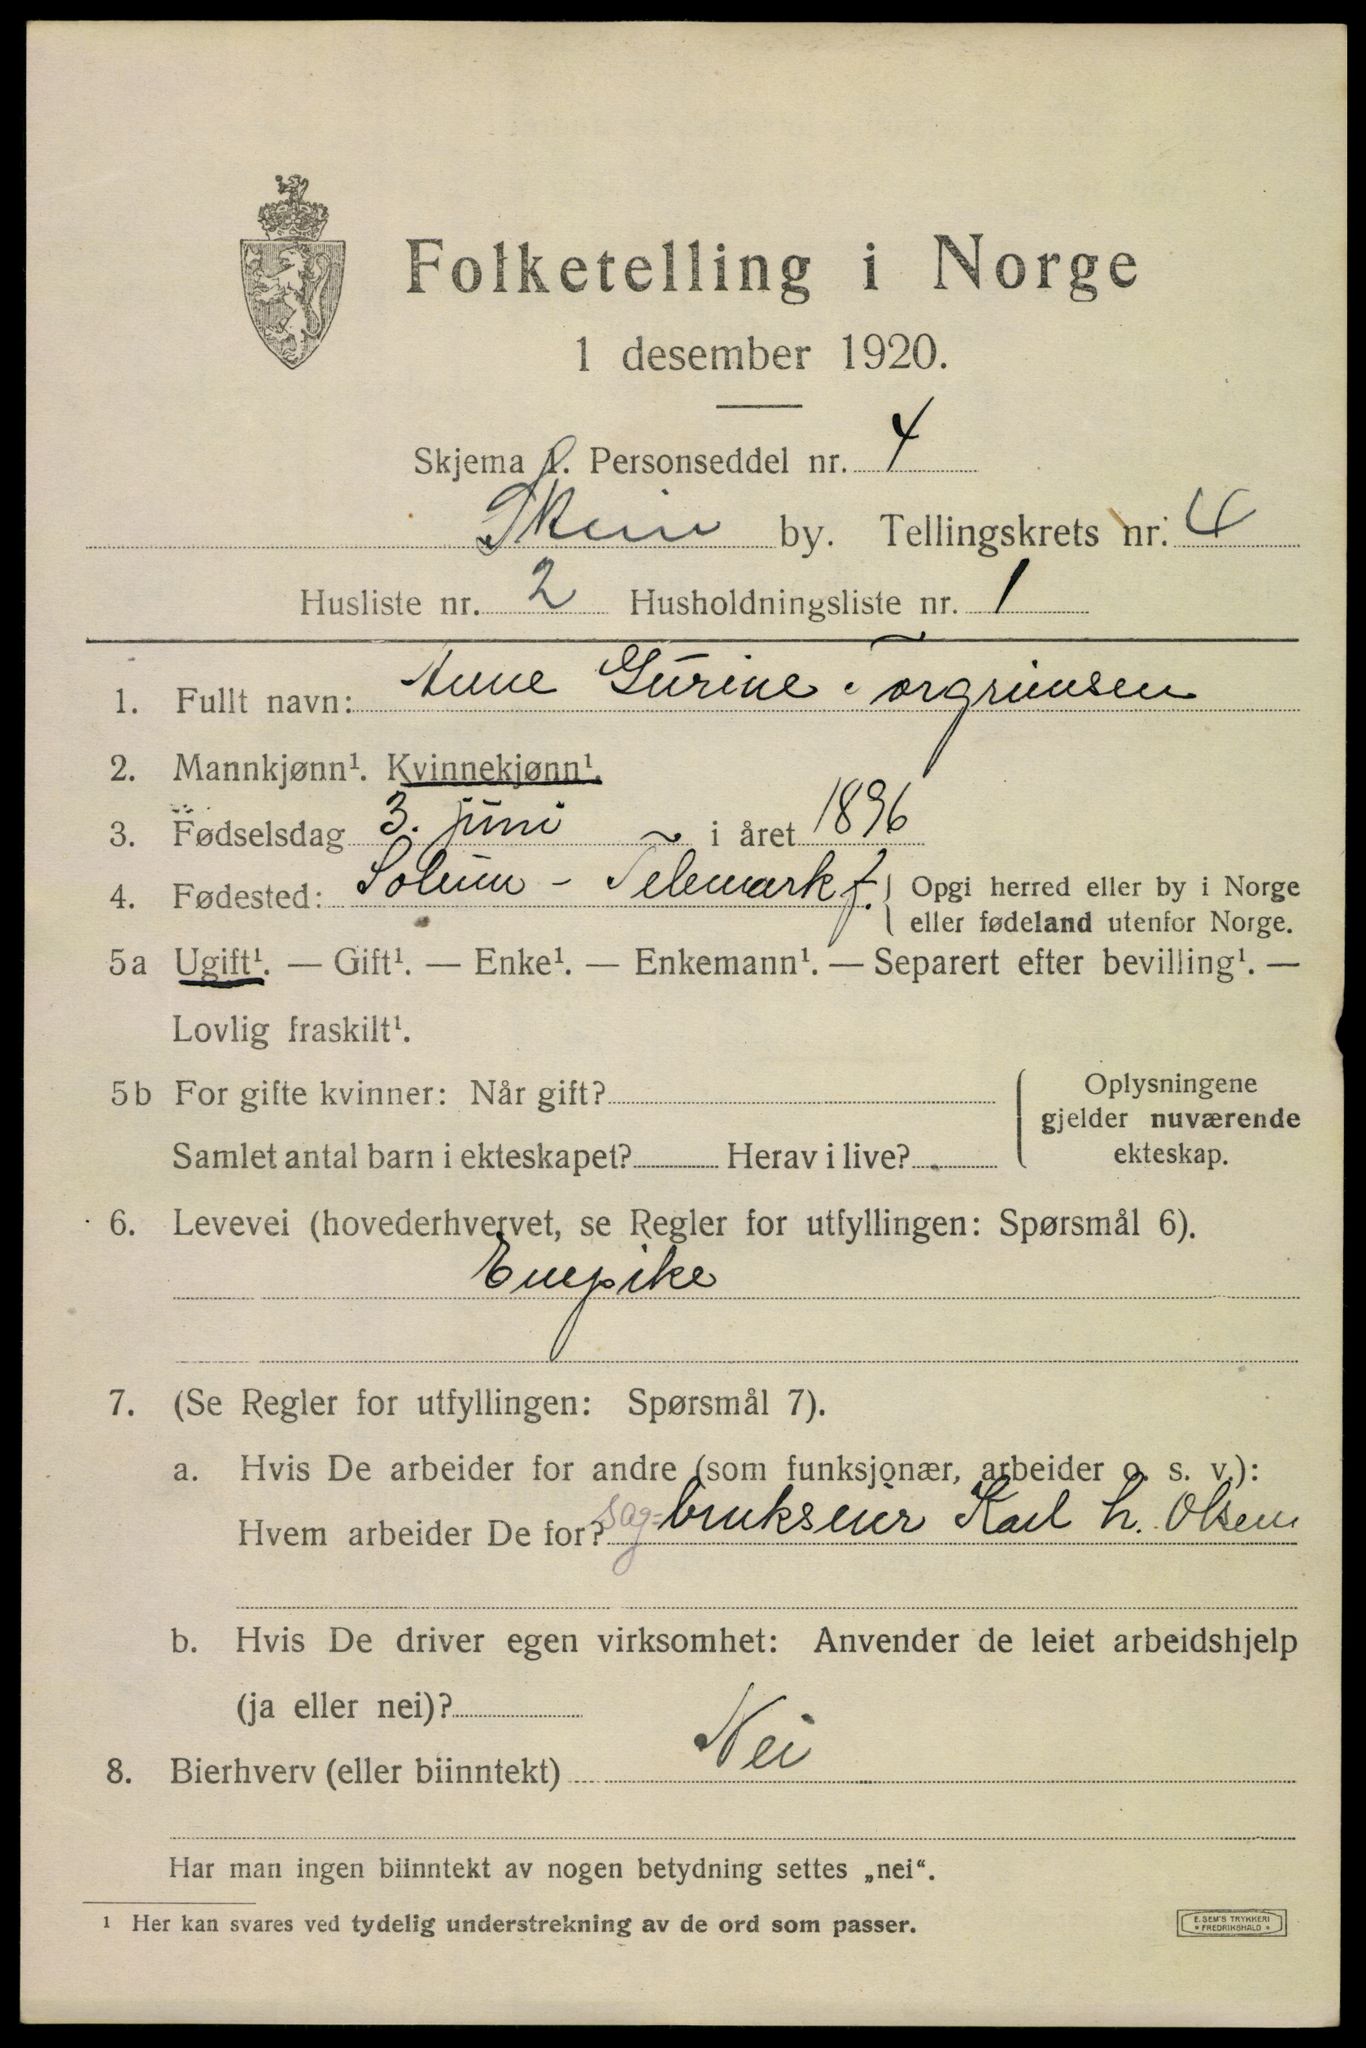 Folketelling i Norge
1 desember 1920.
Skjema 1. Personseddel nr. 4
Skien by. Tellingskrets nr. 4
Husliste nr. 2 Husholdningsliste nr. 1
1. Fullt navn: Anne Gurine Torgrimsen
2. Mannkjønn¹. Kvinnekjønn¹.
3. Fødselsdag 3. juni i året 1896
4. Fødested: Solum - Telemark f. Opgi herred eller by i Norge
eller fødeland utenfor Norge.
5a Ugift¹. — Gift¹. — Enke¹. — Enkemann¹. — Separert efter bevilling¹. —
Lovlig fraskilt¹.
5b For gifte kvinner: Når gift? Oplysningene
gjelder nuværende
Samlet antal barn i ekteskapet? Herav i live? ekteskap.
6. Levevei (hovederhvervet, se Regler for utfyllingen: Spørsmål 6).
Enepike
7. (Se Regler for utfyllingen: Spørsmål 7).
a. Hvis De arbeider for andre (som funksjonær, arbeider o. s. v.):
Hvem arbeider De for? sag=brukseier Karl h. Olsen
b. Hvis De driver egen virksomhet: Anvender de leiet arbeidshjelp
(ja eller nei)?
8. Bierhverv (eller biinntekt) Nei
Har man ingen biinntekt av nogen betydning settes „nei“.
¹ Her kan svares ved tydelig understrekning av de ord som passer.
E. SEM'S TRYKKERI
* FREDRIKSHALD *